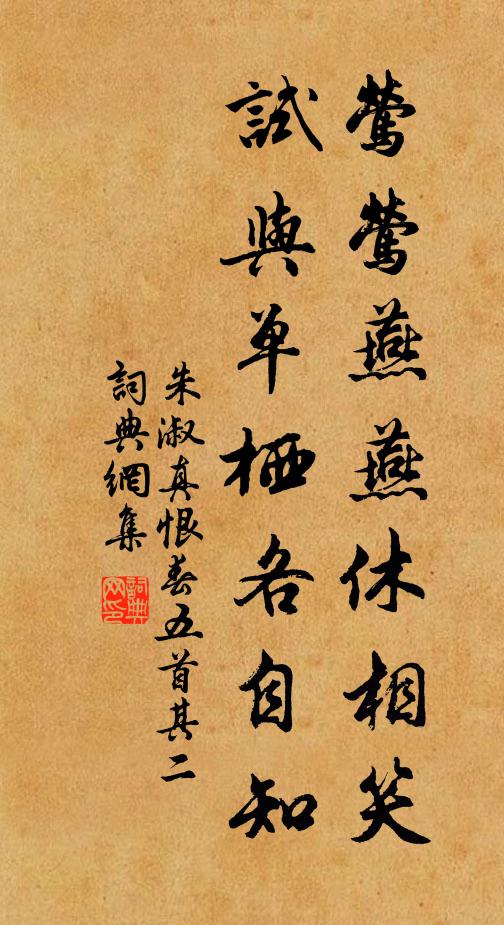 鶯鶯燕燕休相笑
試與单栖各自知
朱淑真恨春五首其二
詞典網集
詞典网印